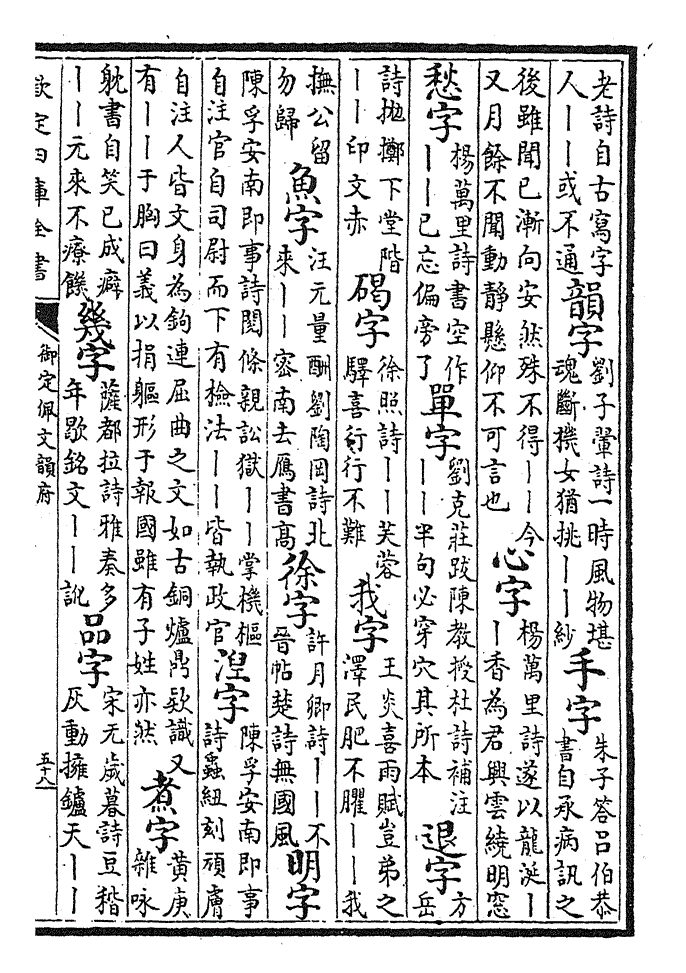 老詩自古寫字人——或不通韻字劉子翬詩一時風物堪魂斷機女猶挑——紗手字朱子答呂伯恭書自承病訊之
後雖聞已漸向安然殊不得——今又月餘不聞動靜懸仰不可言也心字楊萬里詩遂以龍涎——香為君興雲繞明窓
愁字楊萬里詩書空作——已忘偏旁了單字劉克莊跋陳教授杜詩補注——半句必穿穴其所本退字方岳
詩拋擲下堂階——印文赤碣字徐照詩——芙蓉驛喜行行不難我字王炎喜雨賦豈弟之澤民肥不臞——我
撫公留勿歸魚字汪元量酬劉陶岡詩北來——密南去鴈書高徐字許月卿詩——不晉帖楚詩無國風明字
陳孚安南即事詩閣條親訟獄——掌機樞自注官自司尉而下有檢法——皆執政官涅字陳孚安南即事詩蟲紐刻頑膚
自注人皆文身為鉤連屈曲之文如古銅爐鼎欵識又有——于胸曰義以捐軀形于報國雖有子姓亦然煮字黄庚雜咏
躭書自笑已成癖——元來不療饑幾字薩都拉詩雅奏多年歇銘文——訛品字宋元歲暮詩豆稭灰動擁鑪天——
欽定四庫全書
御定佩文韻府
五十八